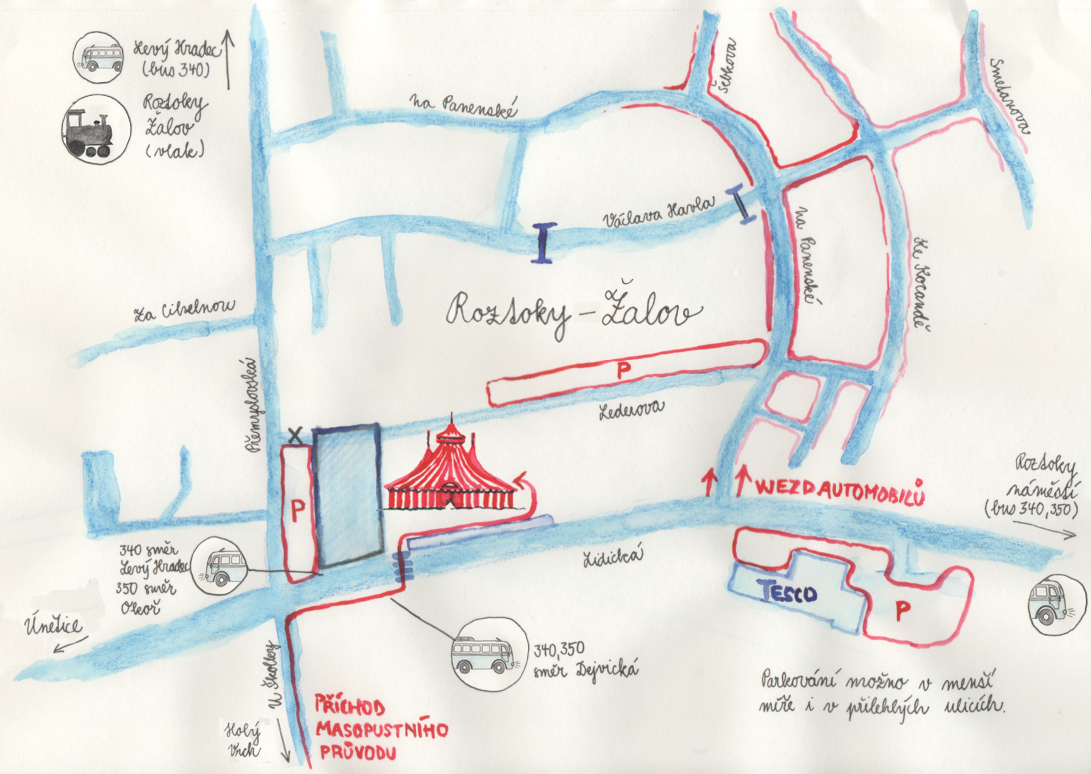 Levý Hradec
(bus 340)
Roztoky
Žalov
(vlak)
na Panenské
Šebkova
Smetanova
Václava Havla
na Panenské
Ke Kocandě
Za Cihelnou
Roztoky – Žalov
Přemyslovská
P
Lederova
X
P
VJEZD AUTOMOBILŮ
Roztoky
náměstí
(bus 340,350)
340 směr
Levý Hradec
350 směr
Okoř
Lidická
TESCO
P
Únětice
U Školky
340,350
směr Dejvická
Parkování možno v menší
míře i v přilehlých ulicích.
PŘÍCHOD
MASOPUSTNÍHO
PRŮVODU
Holý
Vrch